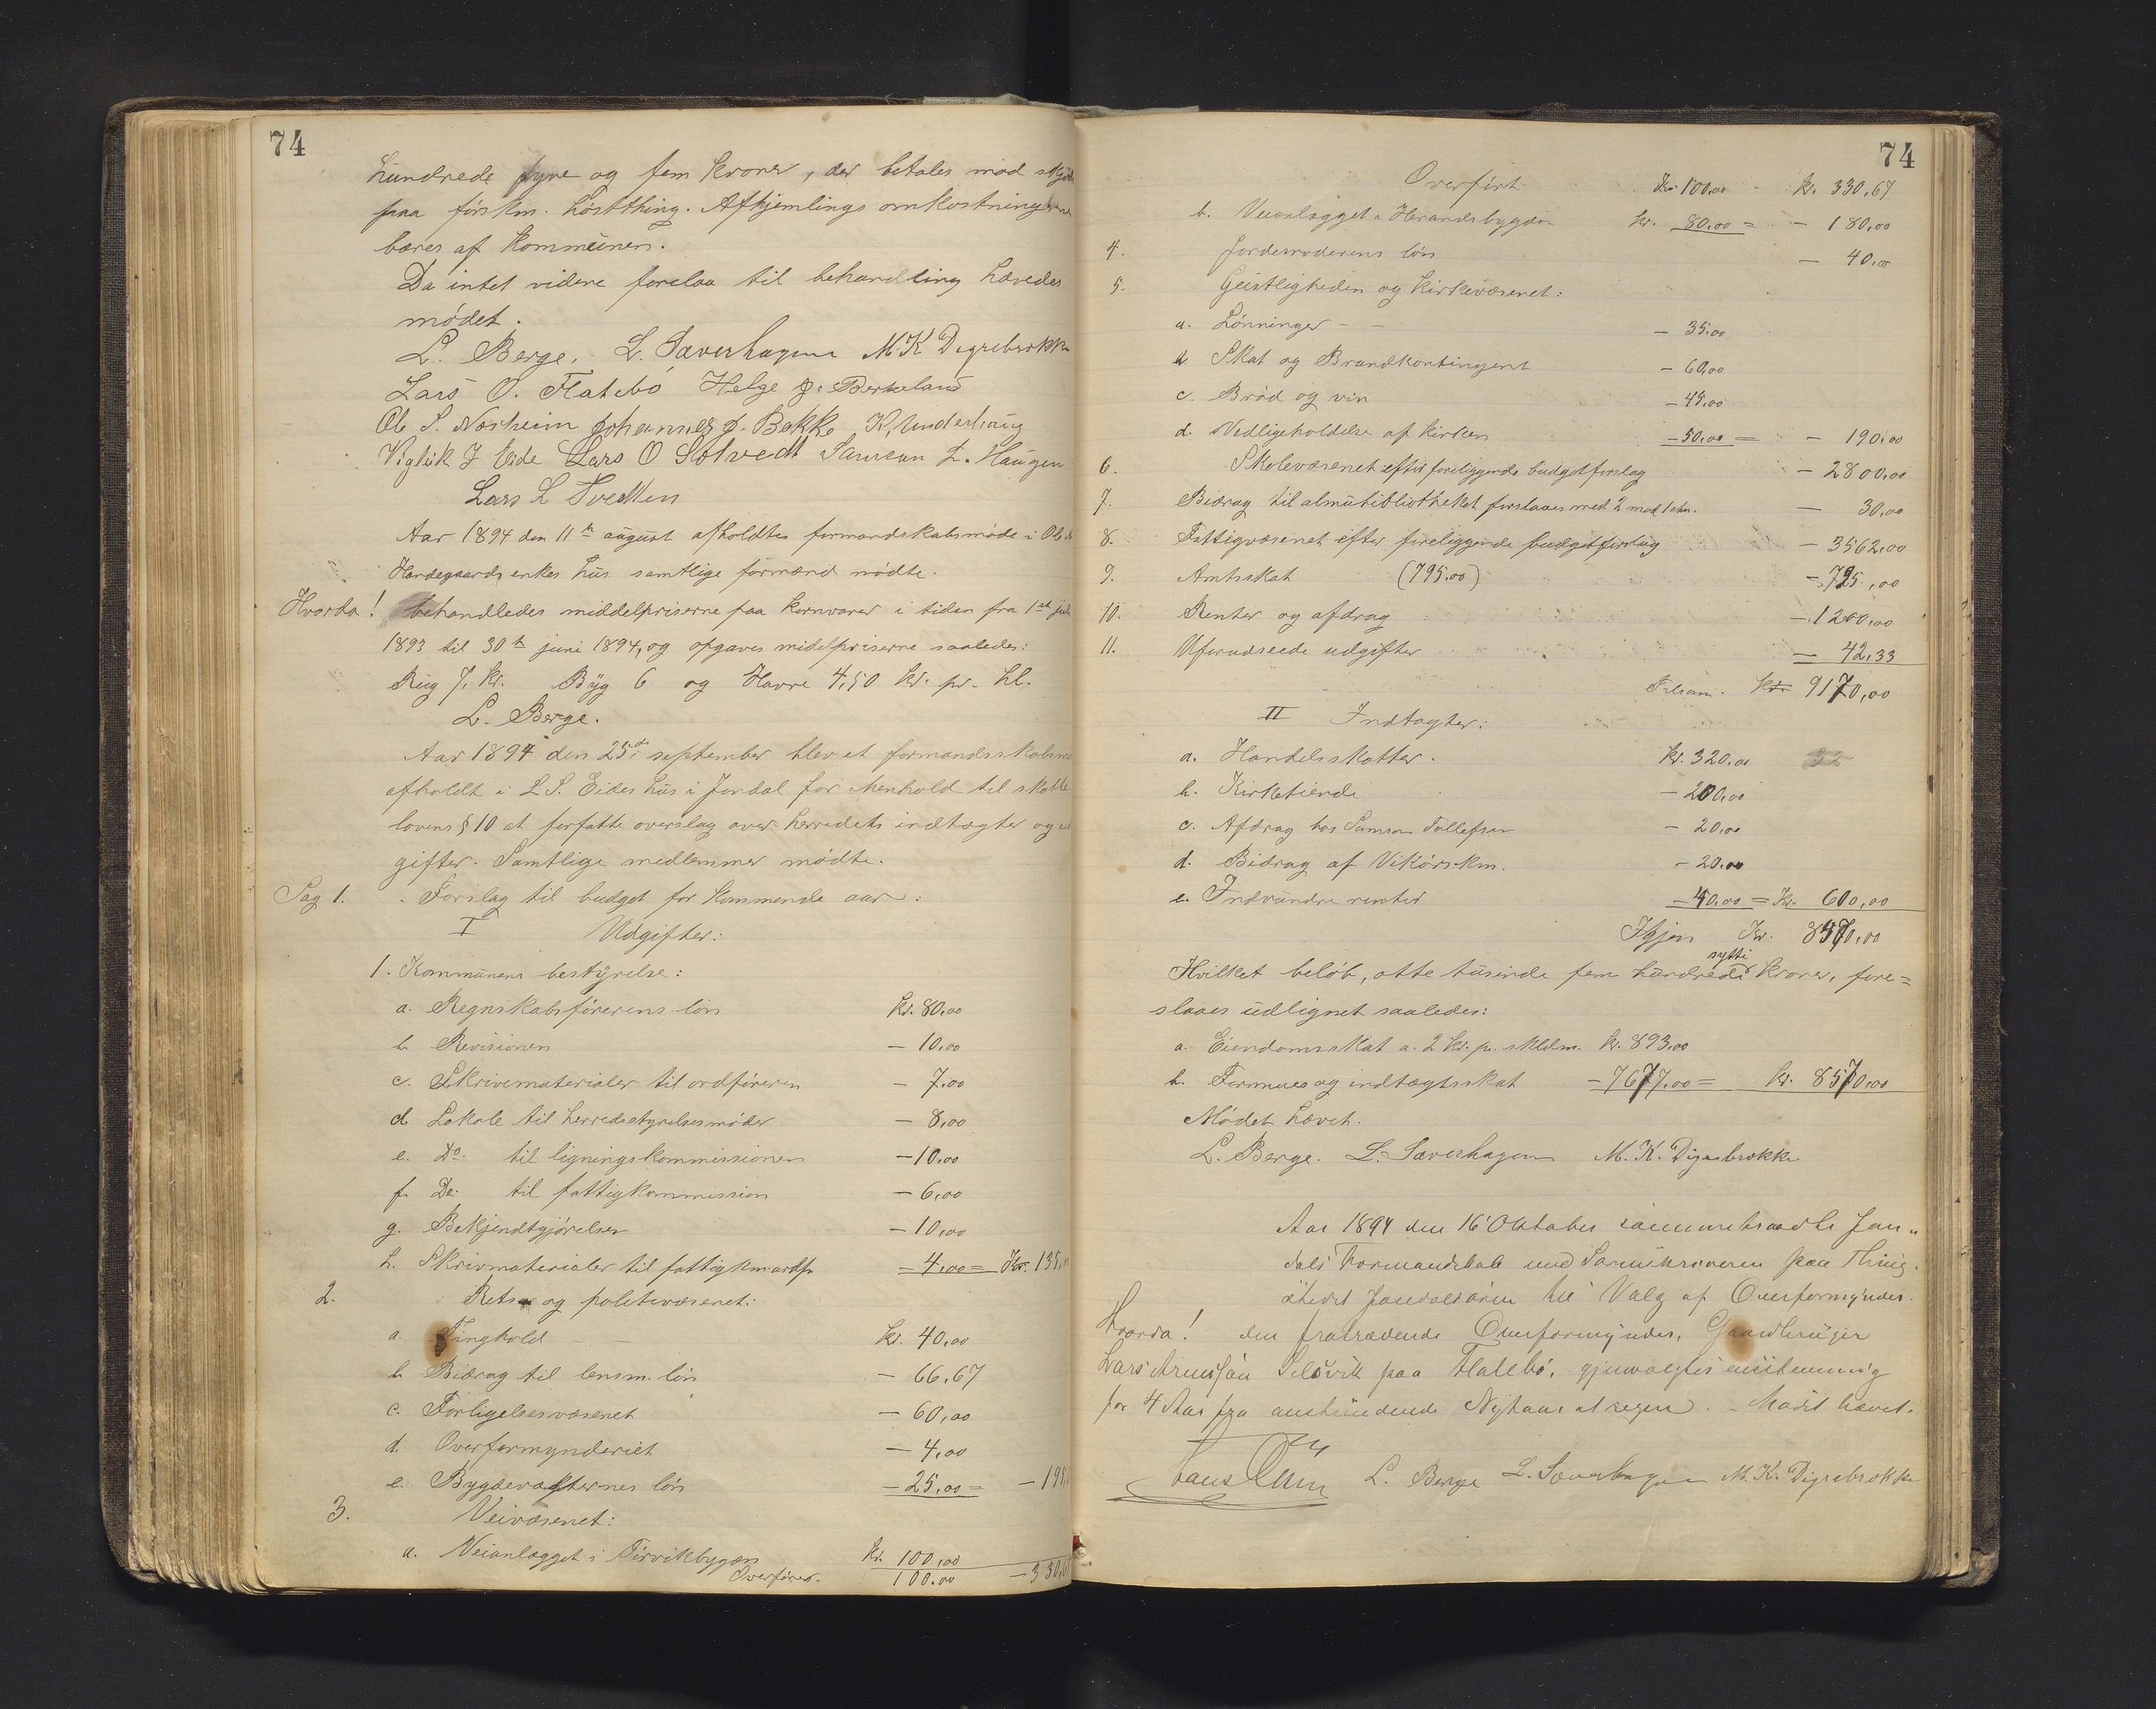 74
hundrede fyre og fem kroner, der betales mod skjøde
paa førstkm. høstthing. Afhjemlings omkostningerne
bæres af kommunen.
Da intet videre forelaa til behandling hævedes
mødet.
L. Berge. L. Saverhagen M K Digrebrøkke
Lars O. Flatebø Helge J. Berkeland
Ole S. Næsheim Johannes J. Bakke K. Underhaug
Viglik J Eide Lars O Solvedt Samson L. Haugen
Lars L Tvedten
Aar 1894 den 11te august afholdtes formandskabsmøde i Ole
Hardegaards enkes hus samtlige formænd mødte.
Hvorda! behandledes middelpriserne paa kornvarer i tiden fra 1ste juli
1893 til 30te juni 1894, og opgaves midelpriserne saaledes:
Rug 7, kr. Byg 6 og Havre 4,50 kr. pr. hl.
L. Berge.
Aar 1894 den 25de september blev et formandsskabsmø
afholdt i L S. Eides hus i Jondal for i henhold til skatte
lovens § 10 at forfatte overslag over herredets indtægter og ud
gifter. Samtlige medlemmer mødte.
Sag 1. Forslag til budget for kommende aar:
I Udgifter:
1. Kommunens bestyrelse:
a. Regnskabsførerens løn kr. 80,00
b. Revisionen — 10,00
c. Skrivematerialer til ordføreren — 7,00
d. Lokale til herredsstyrelsesmøder — 8,00
e. Do. til ligningskommissionen — 10,00
f. Do. til fattigkommission — 6,00
g. Bekjendtgjørelser — 10,00
h. Skrivmaterialer til fattigkm.ordf. — 4,00 = Kr. 135,
2. Rets og politivæsenet:
a. Tinghold kr. 40,00
b. Bidrag til lensm. løn — 66,67
c. Forligelsesvæsenet — 60,00
d. Overformynderiet — 4,00
e. Bygdevægternes løn — 25,00 = — 195,
3. Veivæsenet:
a. Veianlægget i Torvikbygden kr. 100,00
Overføres. 100.00 — 330,6
74
Overført Kr. 100,00 kr. 330,67
b. Veianlægget i Herandsbygden kr. 80,00 = — 180,00
4. Jordemoderens løn — 40,00
5. Geistligheden og kirkevæsenet:
a. Lønninger — 35,00
b. Skat og Brandkontingent — 60,00
c. Brød og vin — 45,00
d. Vedligeholdelse af kirken — 50,00 = — 190,00
6. Skolevæsenet efter foreliggende budgetforslag — 2800,00
7. Bidrag til almubibliotheket forslaaes med 2 mod 1 stm. — 30,00
8. Fattigvæsenet efter foreliggende budgetforslag — 3562,00
9. Amtsskat (795.00) — 795,00
10. Renter og afdrag — 1200,00
11. Uforudseede udgifter — 42,33
Tilsam. Kr. 9170,00
II Indtægter:
a. Handelsskatter. kr. 320,00
b. Kirketiende — 200,00
c. Afdrag hos Samson Tollefsen — 20,00
d. Bidrag af Vikørs km. — 20,00
e. Indvundne renter — 40,00 = Kr. 600,00
Igjen Kr. 8570,00
sytti
Hvilket beløb, otte tusinde fem hundrede kroner, fore=
slaaes udlignet saaledes:
a. Eiendomsskat a. 2 kr. pr. skldm. kr. 893,00
b. Formues og indtægtsskat — 7677,00 = kr. 8570,00
Mødet hævet.
L. Berge. L. Saverhagen M. K. Digrebrøkke
Aar 1894 den 16 Oktober sammentraadte Jon„
dals Formandskab med Sorenskriveren paa Thing.
stedet Jondalsøren til Valg af Overformynder.
Hvorda! den fratrædende Overformynder, Gaardbruger
Lars Arnesøn Selsvik paa Flatebø, gjenvalgtes enstemmig
for 4 Aar fra anstundende Nytaar at regne. – Mødet hævet.
L. Berge L. Saverhagen M. K. Digrebrøkke